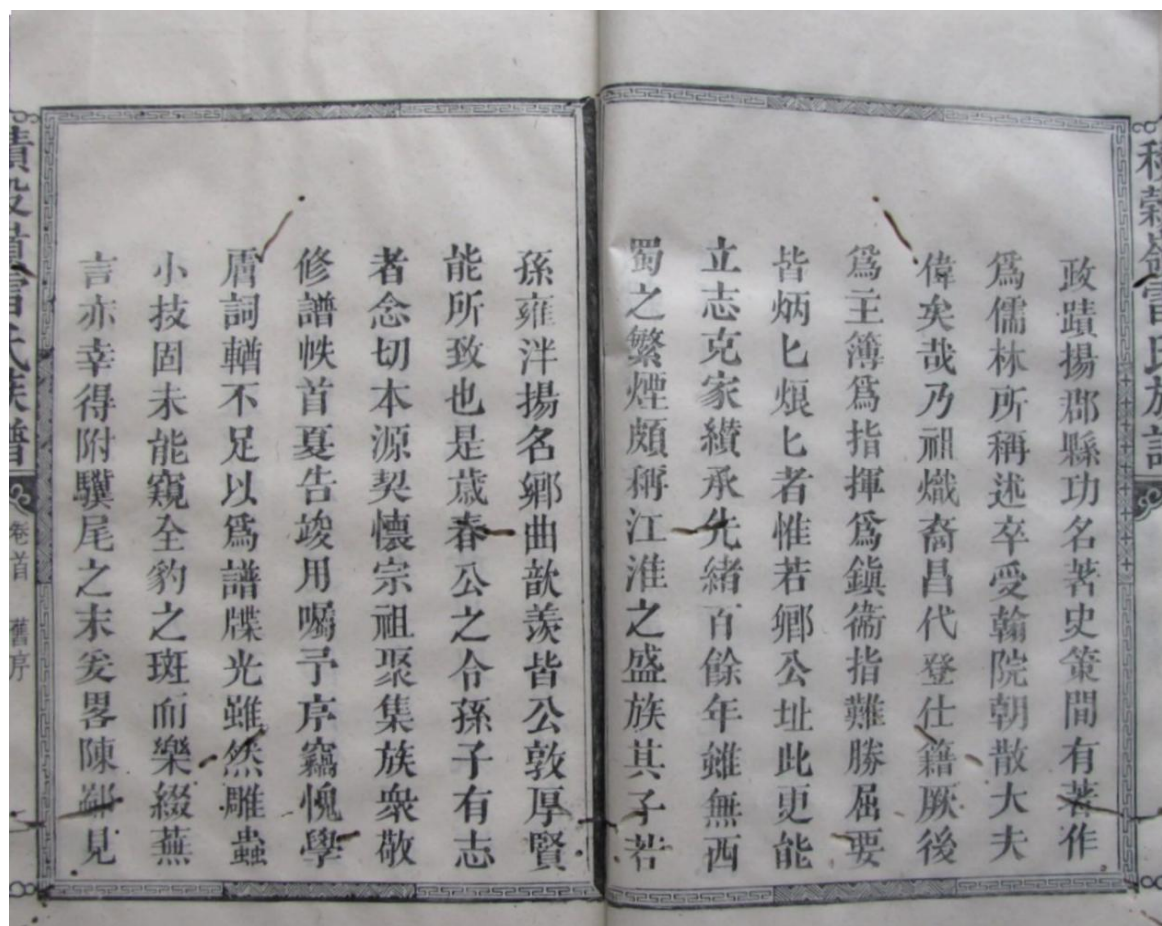 政蹟揚郡縣功名著史策間有著作
爲儒林所稱述卒受翰院朝散大夫
偉矣哉乃祖熾裔昌代登仕籍厥後
爲主簿爲指揮爲鎭衞指難勝屈要
皆炳匕烺匕者惟若鄉公址此更能
立志克家纘承先緒百餘年雖無西
蜀之繁煙頗稱江淮之盛族其子若
孫雍泮揚名鄉曲歆羨皆公敦厚賢
能所致也是歲春公之令孫子有志
者念切本源契懷宗祖聚集族衆敬
修譜帙首夏告竣用囑予序竊愧學
庸詞輶不足以爲譜牒光雖然雕蟲
小技固未能窺全豹之斑而樂綴蕪
言亦幸得附驥尾之末爰畧陳鄙見
氏族譜
卷首
舊序